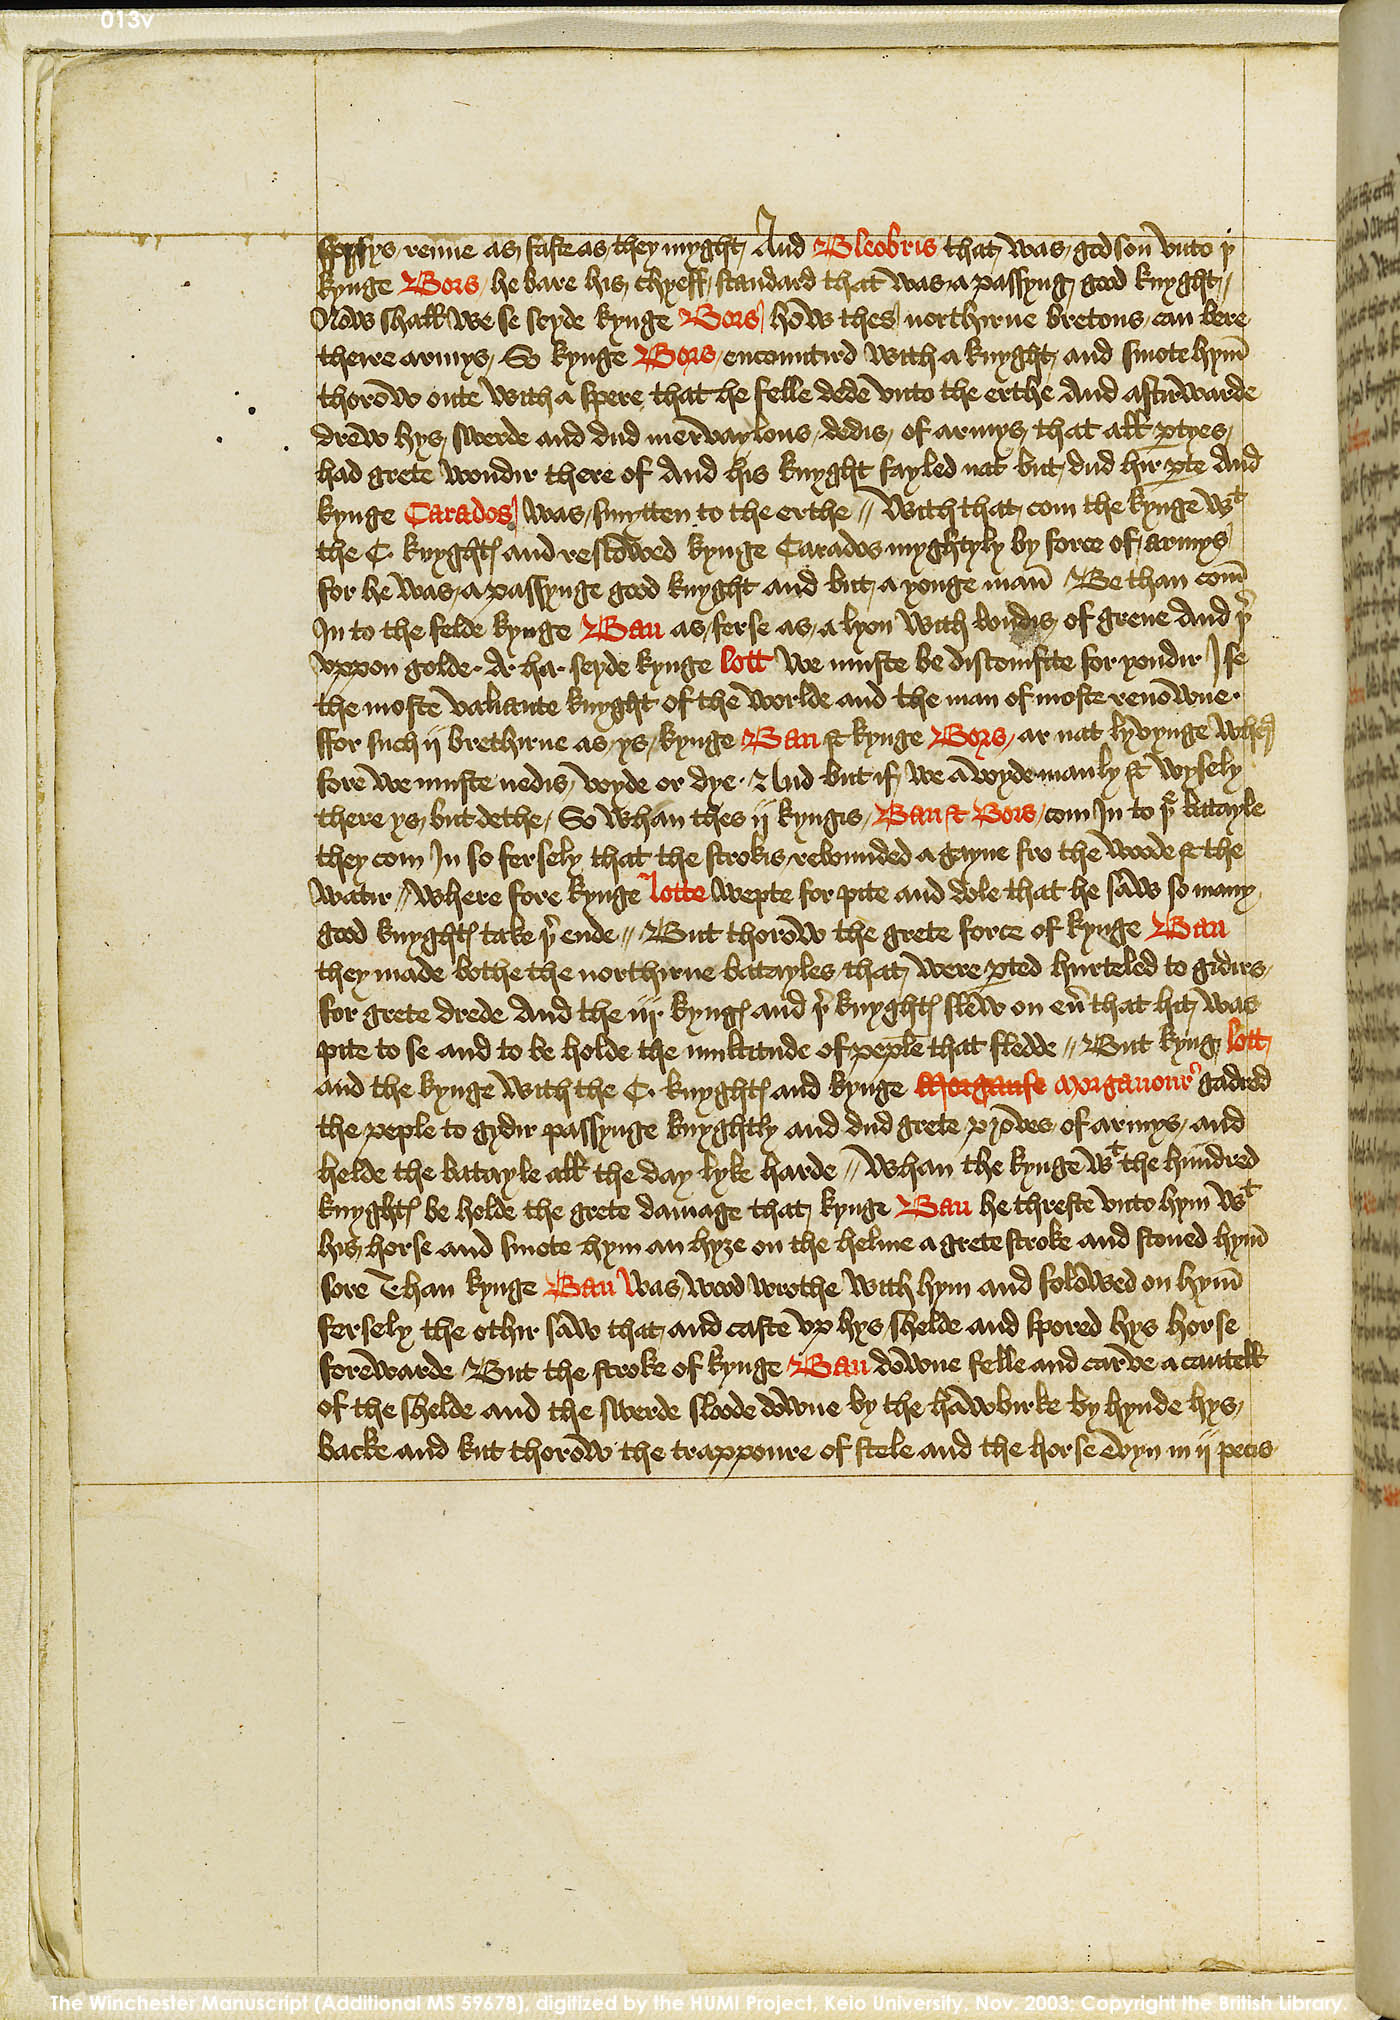 013v
renne as faste as they myght And Bleobris that was godson vnto þe
kynge Bors he bare his chyeff standard that was a passyng good knyght //
Now shall we se seyde kynge Bors how thes northirne bretons can bere
theire armys / So kynge Bors encountird with a knyght and smote hym̄
thorow oute with a spere that he felle dede vnto the erthe And aftirwarde
drew hys swerde and dud mervaylous dedis of armys that all ꝑtyes
had grete wondir there of And his knyght fayled nat but dud hir ꝑte And
kynge Carados was smytten to the erthe // With that com the kynge wt
the C. knyghtꝭ and rescowed kynge Carados myghtyly by force of armys
for he was a passynge good knyght and but a yonge man̄ / Be than com̄
In to the felde kynge Ban as ferse as a lyon with bondis of grene And þer
vppon golde · A · ha · seyde kynge lott we muste be discomfite for yondir I se
the moste valiante knyght of the worlde and the man of moste renowne ·
ffor such ij brethirne as ys kynge Ban & kynge Bors ar nat lyvynge wher
fore we muste nedis voyde or dye · And but if we avoyde manly & wysely
there ys but dethe / So whan thes ij kyngis Ban & Bors com In to þe batayle
they com In so fersely that the strokis rebounded a gayne fro the woode & the
watir // where fore kynge lotte wepte for pite and dole that he saw so many
good knyghtꝭ take þer ende // But thorow the grete force of kynge Ban
they made bothe the northirne batayles that were ꝑted hurteled to gidirs
for grete drede And the iij kyngꝭ and þer knyghtꝭ slew on eū that hit was
pite to se and to be holde the multitude of peple that fledde // But kyng lott
and the kynge with the C. knyghtꝭ and kynge Morganse morganoure gadred
the peple to gydir passynge knyghtly and dud grete proves of armys and
helde the batayle all the day lyke harde // Whan the kynge wt the hundred
knyghtꝭ be holde the grete damage that kynge Ban he threste vnto hym wt
his horse and smote hym an hyze on the helme a grete stroke and stoned hym̄
sore Than kynge Ban was wood wrothe with hym and folowed on hym̄
fersely the othir saw that and caste vp hys shelde and spored hys horse
forewarde / But the stroke of kynge Ban downe felle and carve a cantell
of the shelde and the swerde sloode downe by the hawbirke by hynde hys
backe and kut thorow the trappoure of stele and the horse evyn in ij pecis
The Winchester Manuscript (Additional MS 59678), digitized by the HUMI Project, Keio University, Nov. 2003; Copyright the British Library.